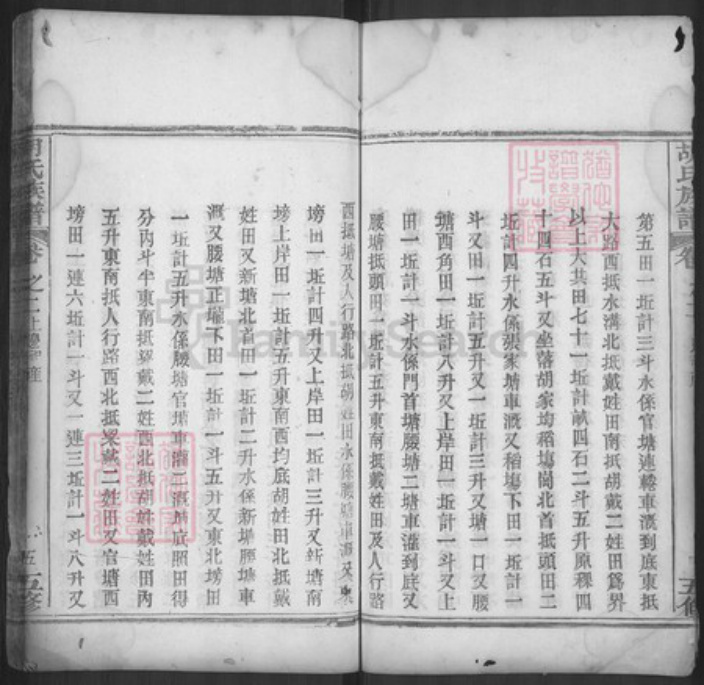 胡氏族譜
五修
第五田一坵計三斗水係官塘連轉車溉到底東抵
大路西抵水溝北抵戴姓田南抵胡戴二姓田爲界
以上大共田七十一坵計畝四石二斗五升原稞四
十四石五斗又坐落胡家坳稻塲崗北首抵頭田二
坵計四升水係張家塘車溉又稻塲下田一坵計一
斗又田一坵計五升又一坵計三升又塘一口又腰
塘西角田一坵計八升又上岸田一坵計一斗又上
田一坵計一斗水係門首塘腰塘二塘車溉到底又
腰塘抵頭田一坵計五升東南抵戴姓田及人行路
西抵塘及人行路北抵胡姓田水係腰塘車溉又
塝田一坵計四升又上岸田一坵計三升又新塘南
塝上岸田一坵計五升東南西均底胡姓田北抵戴
姓田又新塘北首田一坵計二升水係新塘腰塘車
溉又腰塘正壠下田一坵計一斗五升又東北塝田
一坵計五升水係腰塘官塘車溉二溉到底照田得
分內斗半東南抵梁戴二姓西北抵胡姓戴姓田內
五升東南抵人行路西北抵梁戴二姓田又官塘西
塝田一連六坵計一斗又一連三坵計一斗八升又
胡氏族譜
卷之二
五
五修
FamilySearch